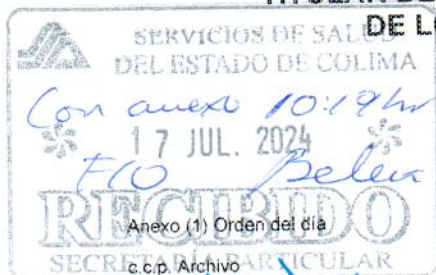 TITULAR DE
DE L
SERVICIOS DE SALUD
DEL ESTADO DE COLIMA
Con anexo 10:19 hr
17 JUL. 2024
Belen
RECIBIDO
Anexo (1) Orden del día
SECRETARIA PARTICULAR
c.c.p. Archivo